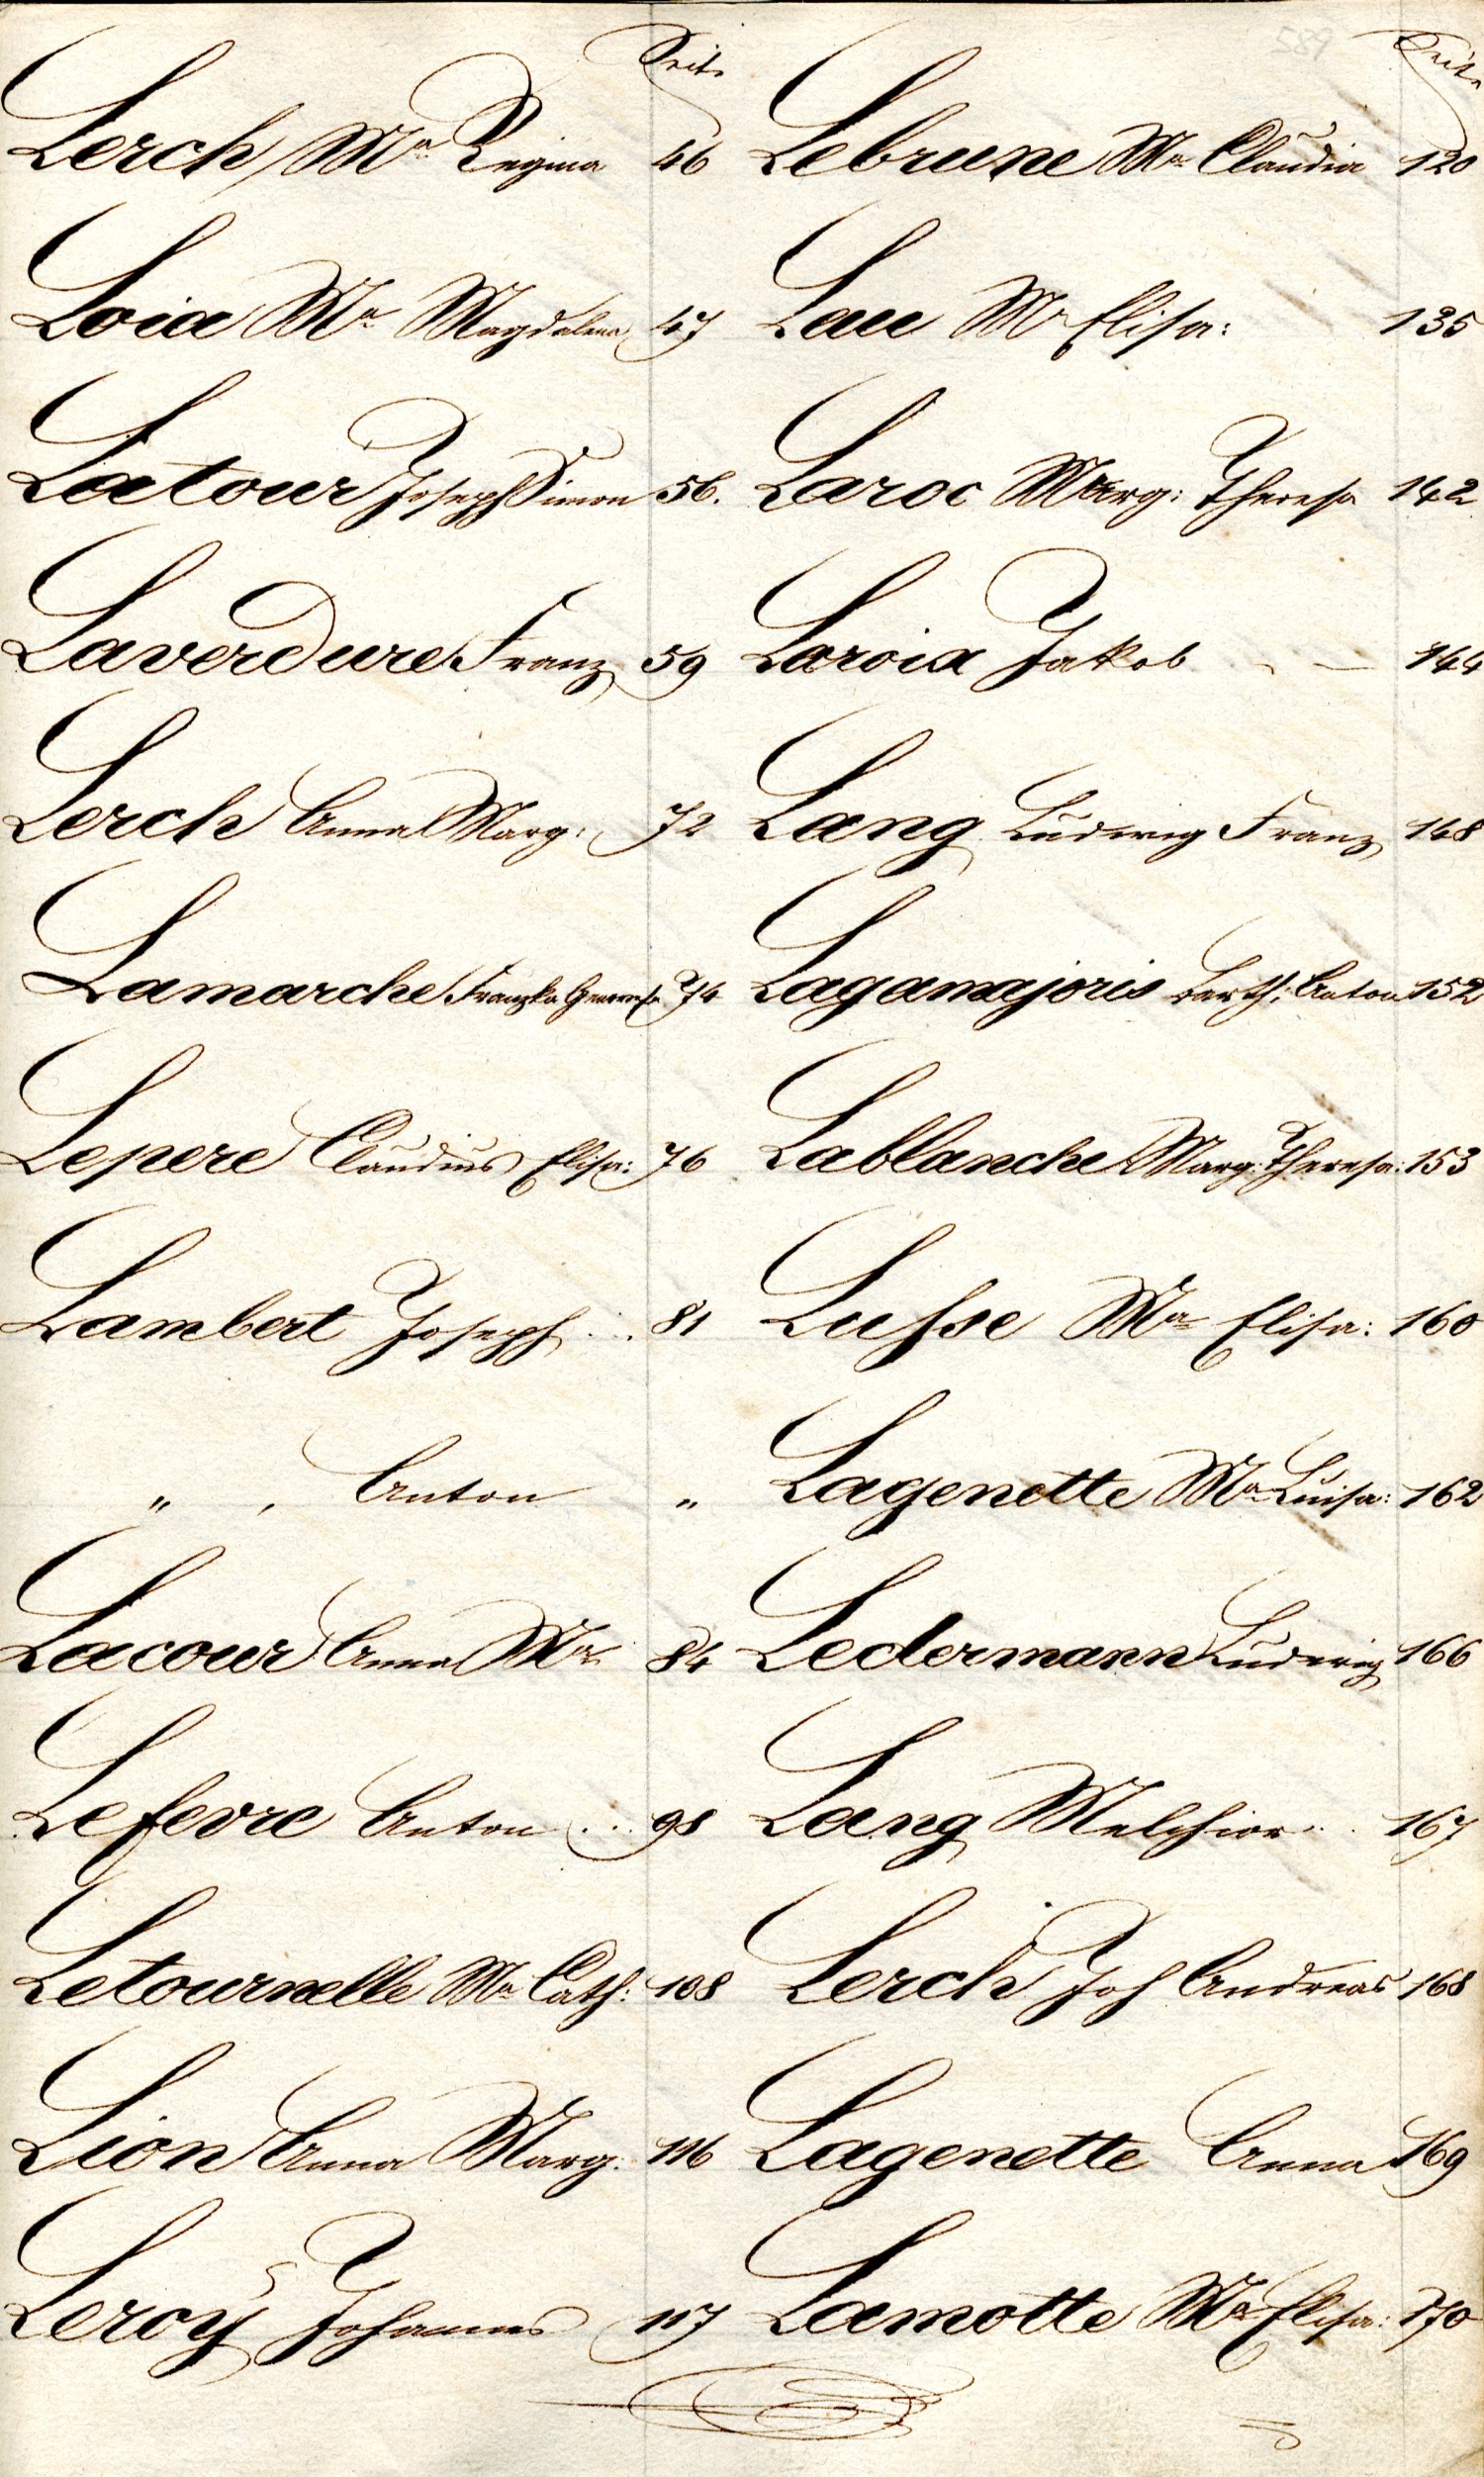 589
Seite
Lerch Ma Regina 46
Loia Ma Magdalena 47
Latour Joseph Simon 56.
Laverdure Franz 59
Lerch Anna Marg: 72
Lamarche Franzka 74
Lepere Claudius Elisa: 76
Lambert Joseph .. 81
" , Anton "
Lacour Anna Ma 84
Lefevre Anton .. 98
Letournelle Ma Cath: 108
Lion Anna Marg: 116
Leroy Johannes 117
Seite
Lebrune Ma Claudia 120
Lau Ma Elisa: 135
Laroc Marg: Theresa 142
Laroia Jakob 144
Lang Ludwig Franz 148
Lagamajoris Barth: Anton 152
Lablanche Marg: Theresa: 153
Lusse Ma Elisa: 160
Lagenette Ma Luisa: 162
Ledermann Ludwig 166
Lang Melchior .. 167
Lerch Joh Andreas 168
Lagenette Anna 169
Lamotte Ma Elisa: 170